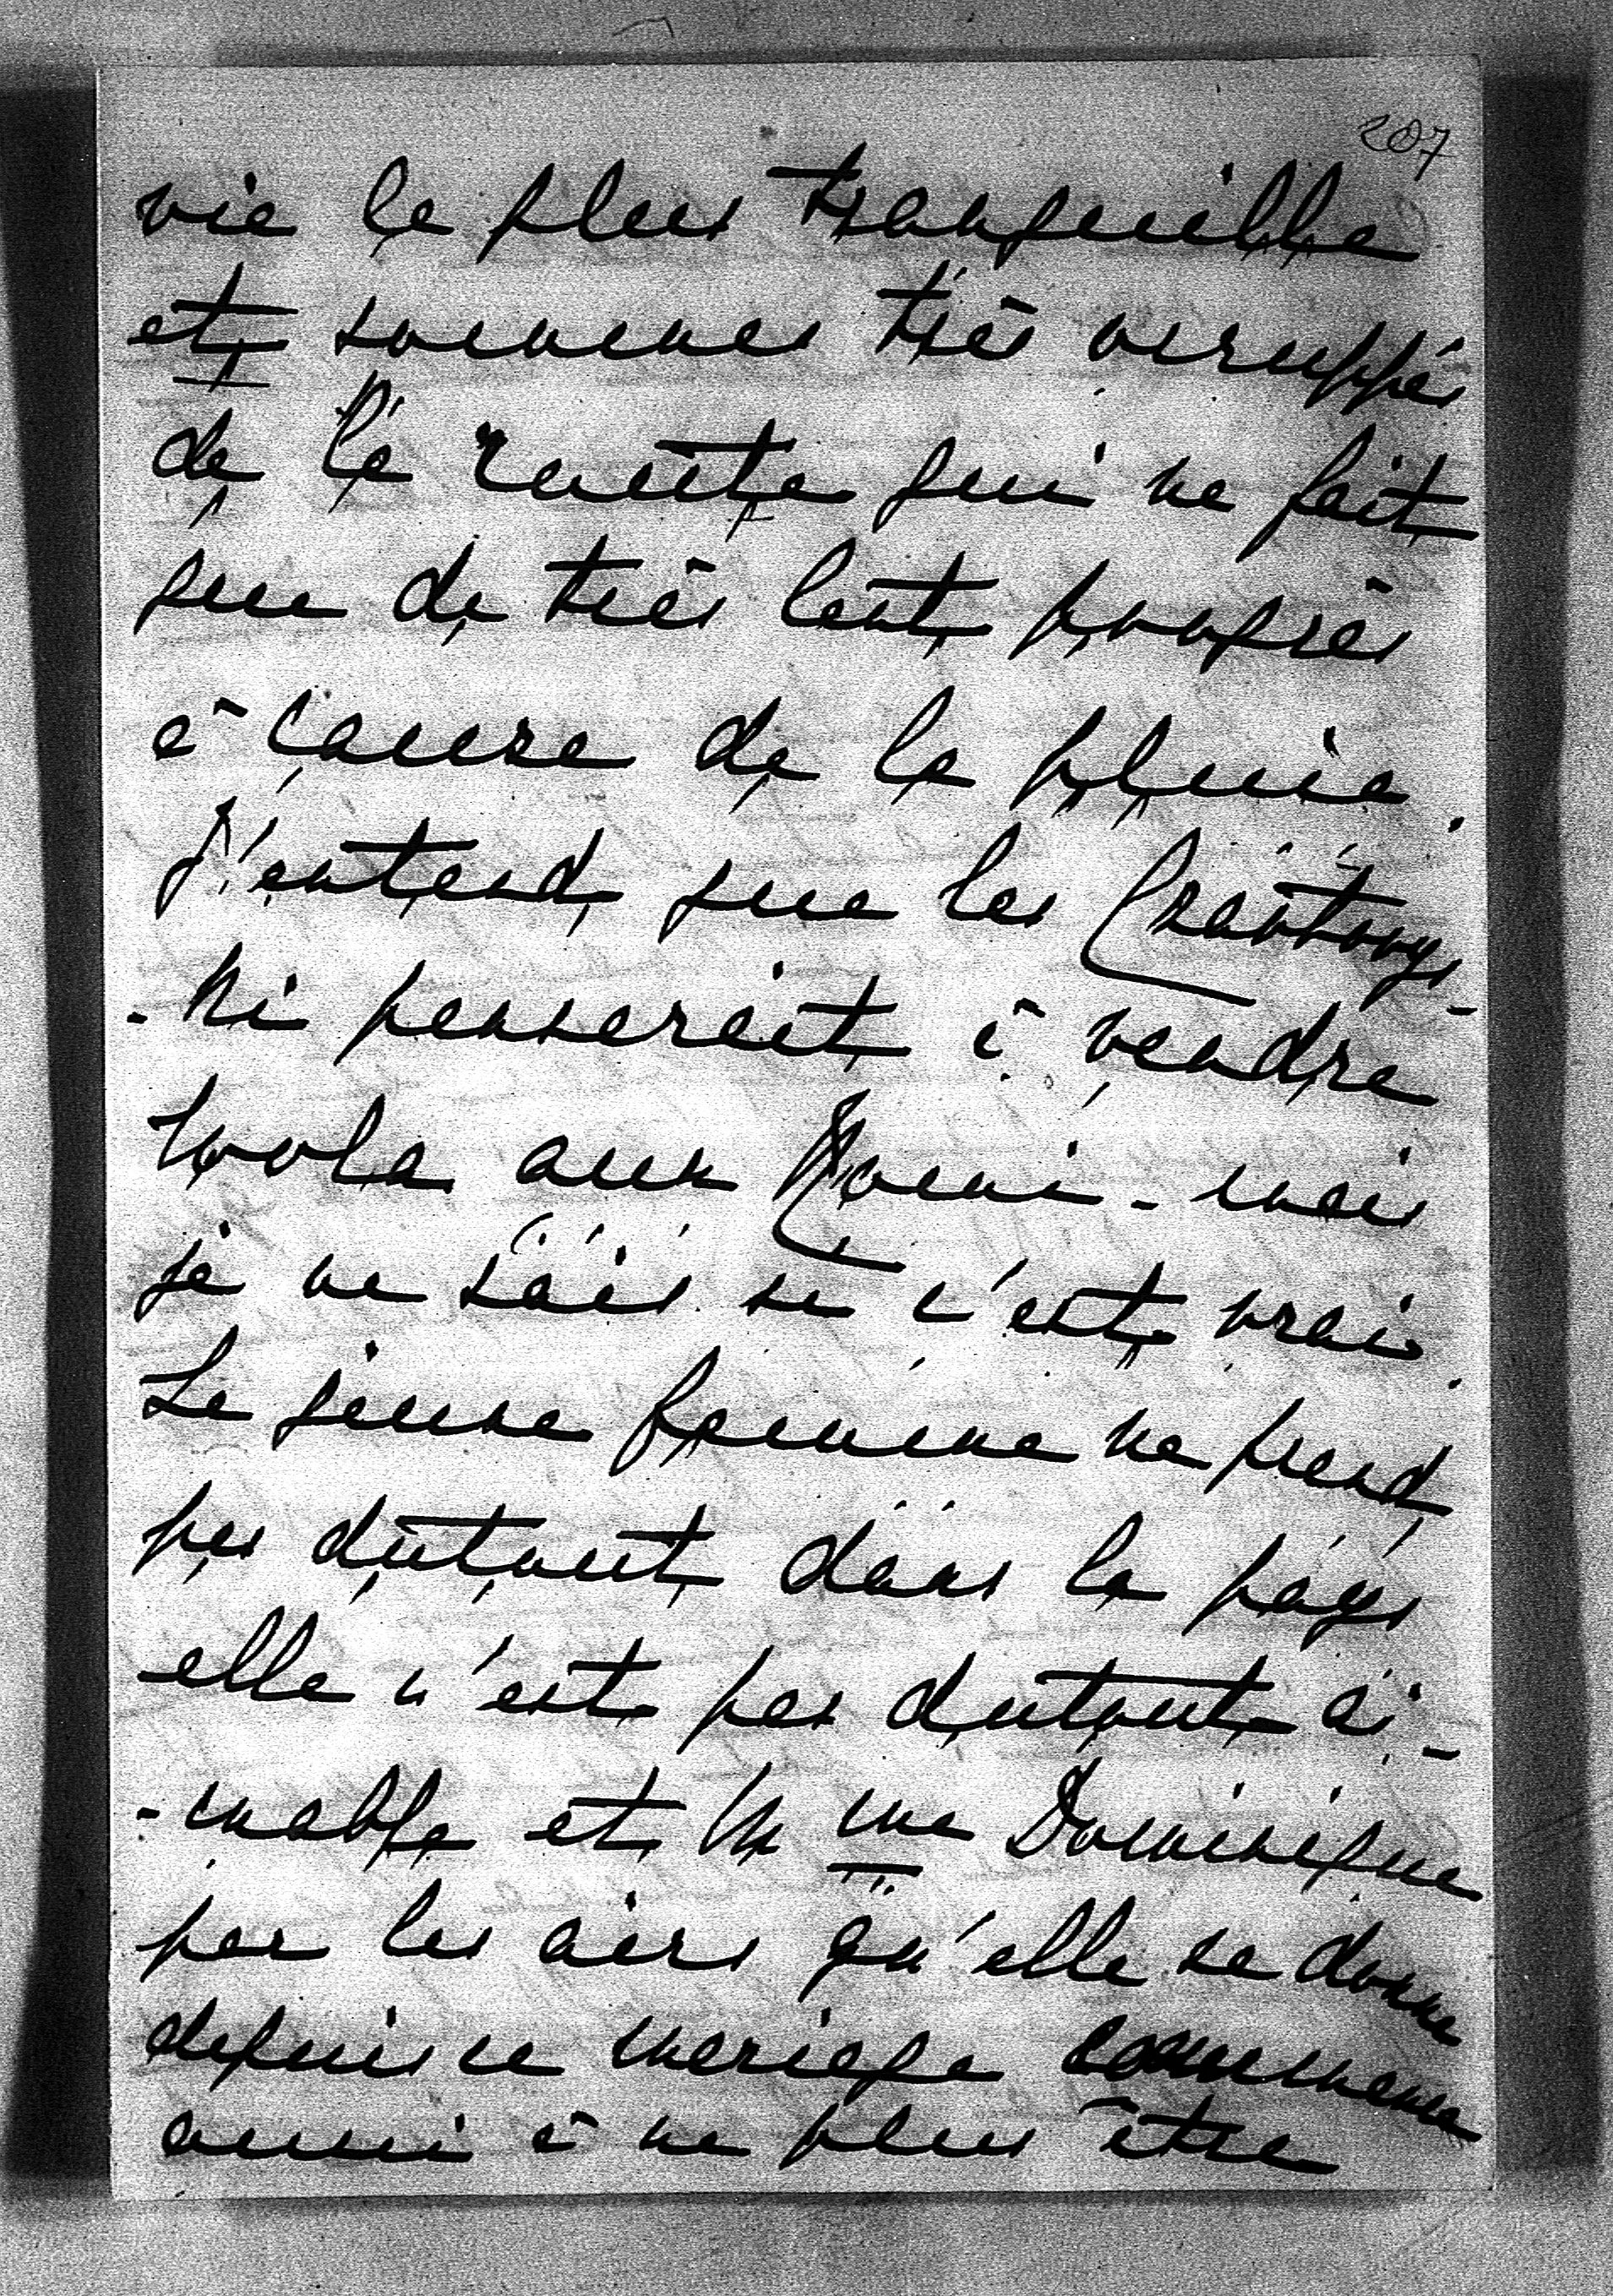 207
vie la plus tranquille
et sommes très occuppés
de la route qui ne fait
que de très lent progrès
à cause de la pluie.
J'entend que les Crantony-
-ki penserait à vendre
aux - mais
je ne sais si c'est vrai.
La jeune femme ne prend
pas dutout dans le pays
elle n'est pas dutout ai-
-mable et Mme Dominique
par les airs qu'elle se donne
depuis ce mariage commence
aussi à ne plus être